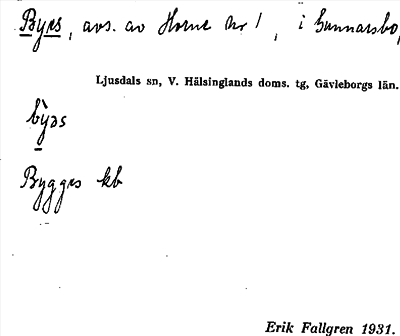 Byrs, avs. av Horne Nr 1, i Gunnarsbo,
Ljusdals sn, V. Hälsinglands doms. tg, Gävleborgs län.
bỳəs
Bygges kb
Erik Fallgren 1931.